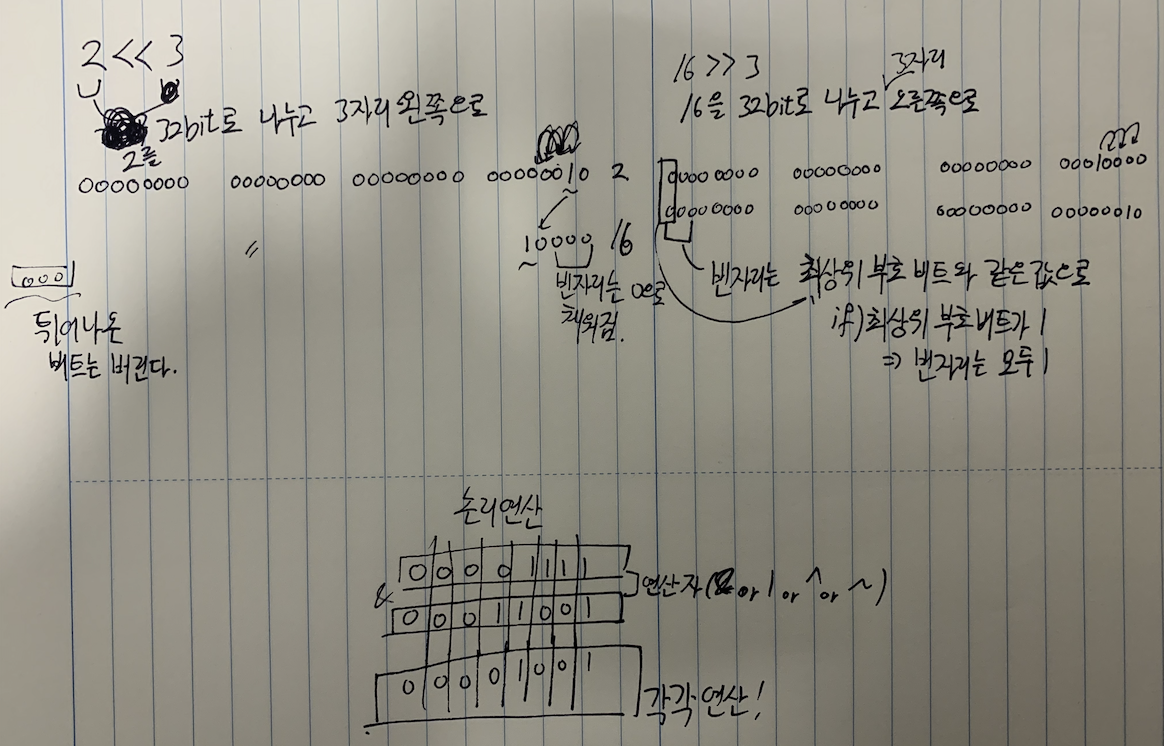 2 << 3
32bit로 나누고 3자리 왼쪽으로
2를
00000000 00000000 00000000 00000010 2
10000 16
빈자리는 0으로
채워짐.
000
튀어나온
비트는 버린다.
16 >> 3
3자리
16을 32bit로 나누고 오른쪽으로
00000000 00000000 00000000 00010000
00000000 00000000 00000000 00000010
빈자리는 최상위 부호 비트와 같은 값으로
if) 최상위 부호비트가 1
⇒ 빈자리는 모두 1
논리연산
0 0 0 0 1 1 1 1
&
연산자 (& or | or ^ or ~)
0 0 0 1 1 0 0 1
0 0 0 0 1 0 0 1
각각 연산!